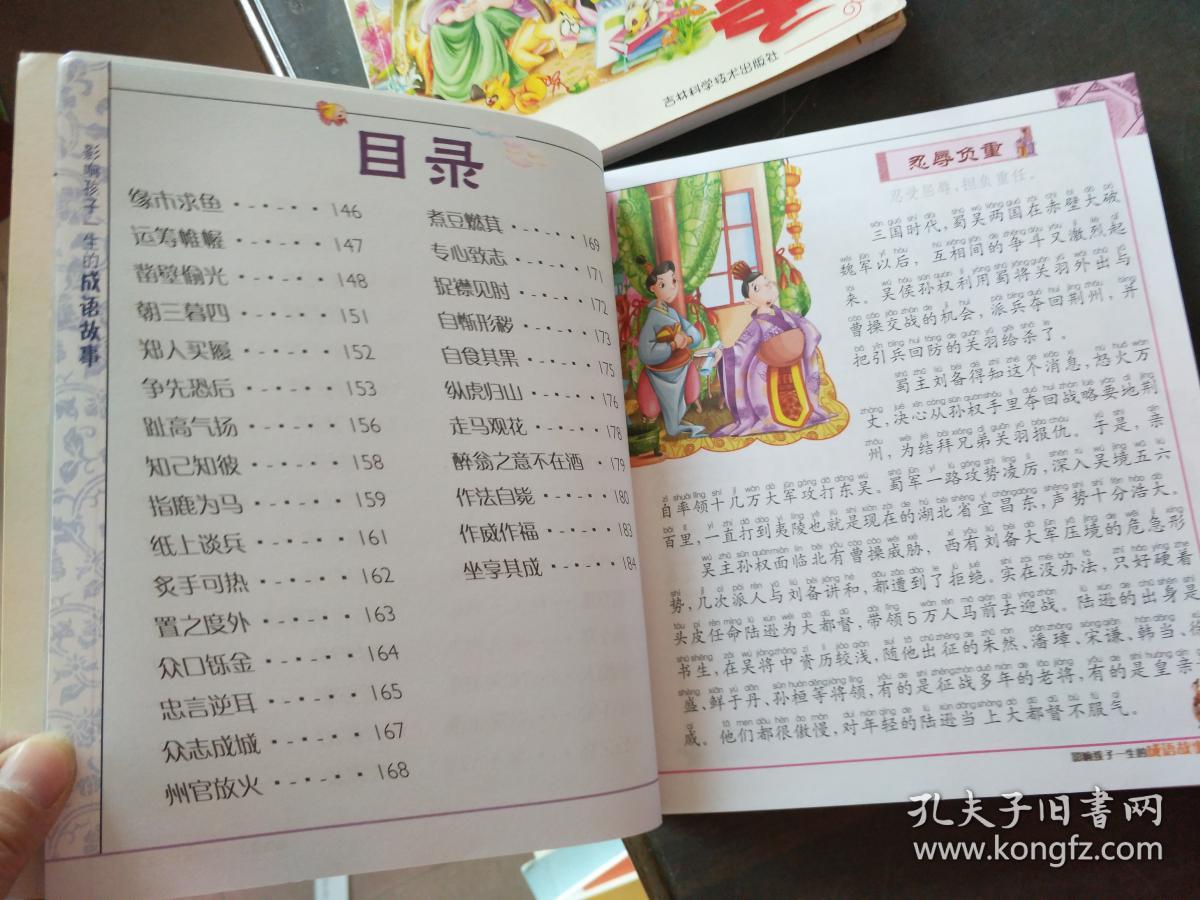 吉林科学技术出版社
影响孩子一生的成语故事
目录
缘木求鱼 146
运筹帷幄 147
凿壁偷光 148
朝三暮四 151
郑人买履 152
争先恐后 153
趾高气扬 156
知己知彼 158
指鹿为马 159
纸上谈兵 161
炙手可热 162
置之度外 163
众口铄金 164
忠言逆耳 165
众志成城 167
州官放火 168
煮豆燃萁 169
专心致志 171
捉襟见肘 172
自惭形秽 173
自食其果 175
纵虎归山 176
走马观花 178
醉翁之意不在酒 179
作法自毙 180
作威作福 183
坐享其成 184
忍辱负重
忍受屈辱，担负重任。
三国时代，蜀吴两国在赤壁大破
魏军以后，互相间的争斗又激烈起
来。吴侯孙权利用蜀将关羽外出与
曹操交战的机会，派兵夺回荆州，并
把引兵回防的关羽给杀了。
蜀主刘备得知这个消息，怒火万
丈，决心从孙权手里夺回战略要地荆
州，为结拜兄弟关羽报仇。于是，亲
自率领十几万大军攻打东吴。蜀军一路攻势凌厉，深入吴境五六
百里，一直打到夷陵也就是现在的湖北省宜昌东，声势十分浩大。
吴主孙权面临北有曹操威胁，西有刘备大军压境的危急形
势，几次派人与刘备讲和，都遭到了拒绝。实在没办法，只好硬着
头皮任命陆逊为大都督，带领5万人马前去迎战。陆逊的出身是
书生，在吴将中资历较浅，随他出征的朱然、潘璋、宋谦、韩当、徐
盛、鲜于丹、孙桓等将领，有的是征战多年的老将，有的是皇亲
戚。他们都很傲慢，对年轻的陆逊当上大都督不服气。
影响孩子一生的成语故事
孔夫子旧书网
www.kongfz.com